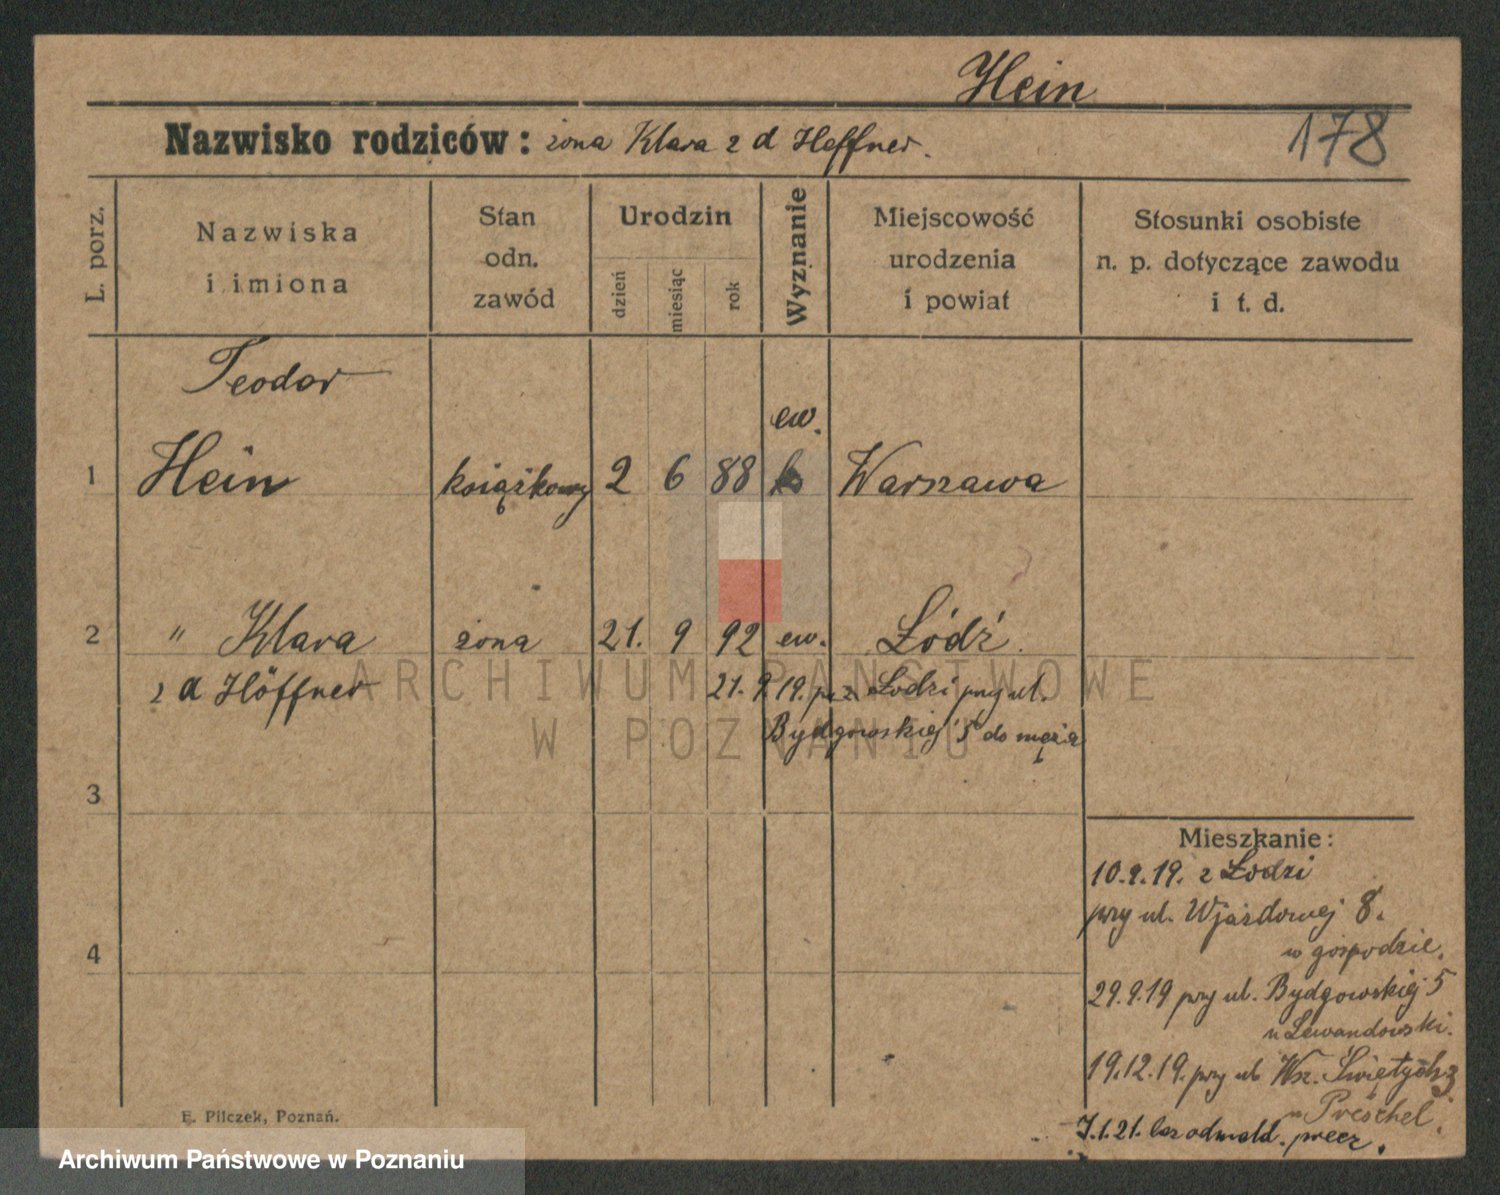 Hein
Nazwisko rodziców: żona Klara z d Heffner.
178
L. porz.
Nazwiska
i imiona
Stan
odn.
zawód
Urodzin
dzień
miesiąc
rok
Wyznanie
Miejscowość
urodzenia
i powiat
Stosunki osobiste
n. p. dotyczące zawodu
i t. d.
Teodor
ew.
1 Hein książkowy 2 6 88 Warszawa
2 " Klara żona 21. 9 92 ew. Łódź.
z d Höffner 21.9.19. z Łodzi przy ul.
Bydgowskiej 5 do męża
3
4
Mieszkanie:
10.9.19. z Łodzi
przy ul. Wjazdowej 8.
w gospodzie.
29.9.19 przy ul. Bydgowskiej 5
u Lewandowski.
19.12.19. przy ul. Wsz. Świętych 3
u Preschel.
7.1.21. bez odmeld. precz.
E. Pilczek, Poznań.
ARCHIWUM PAŃSTWOWE
W POZNANIU
Archiwum Państwowe w Poznaniu